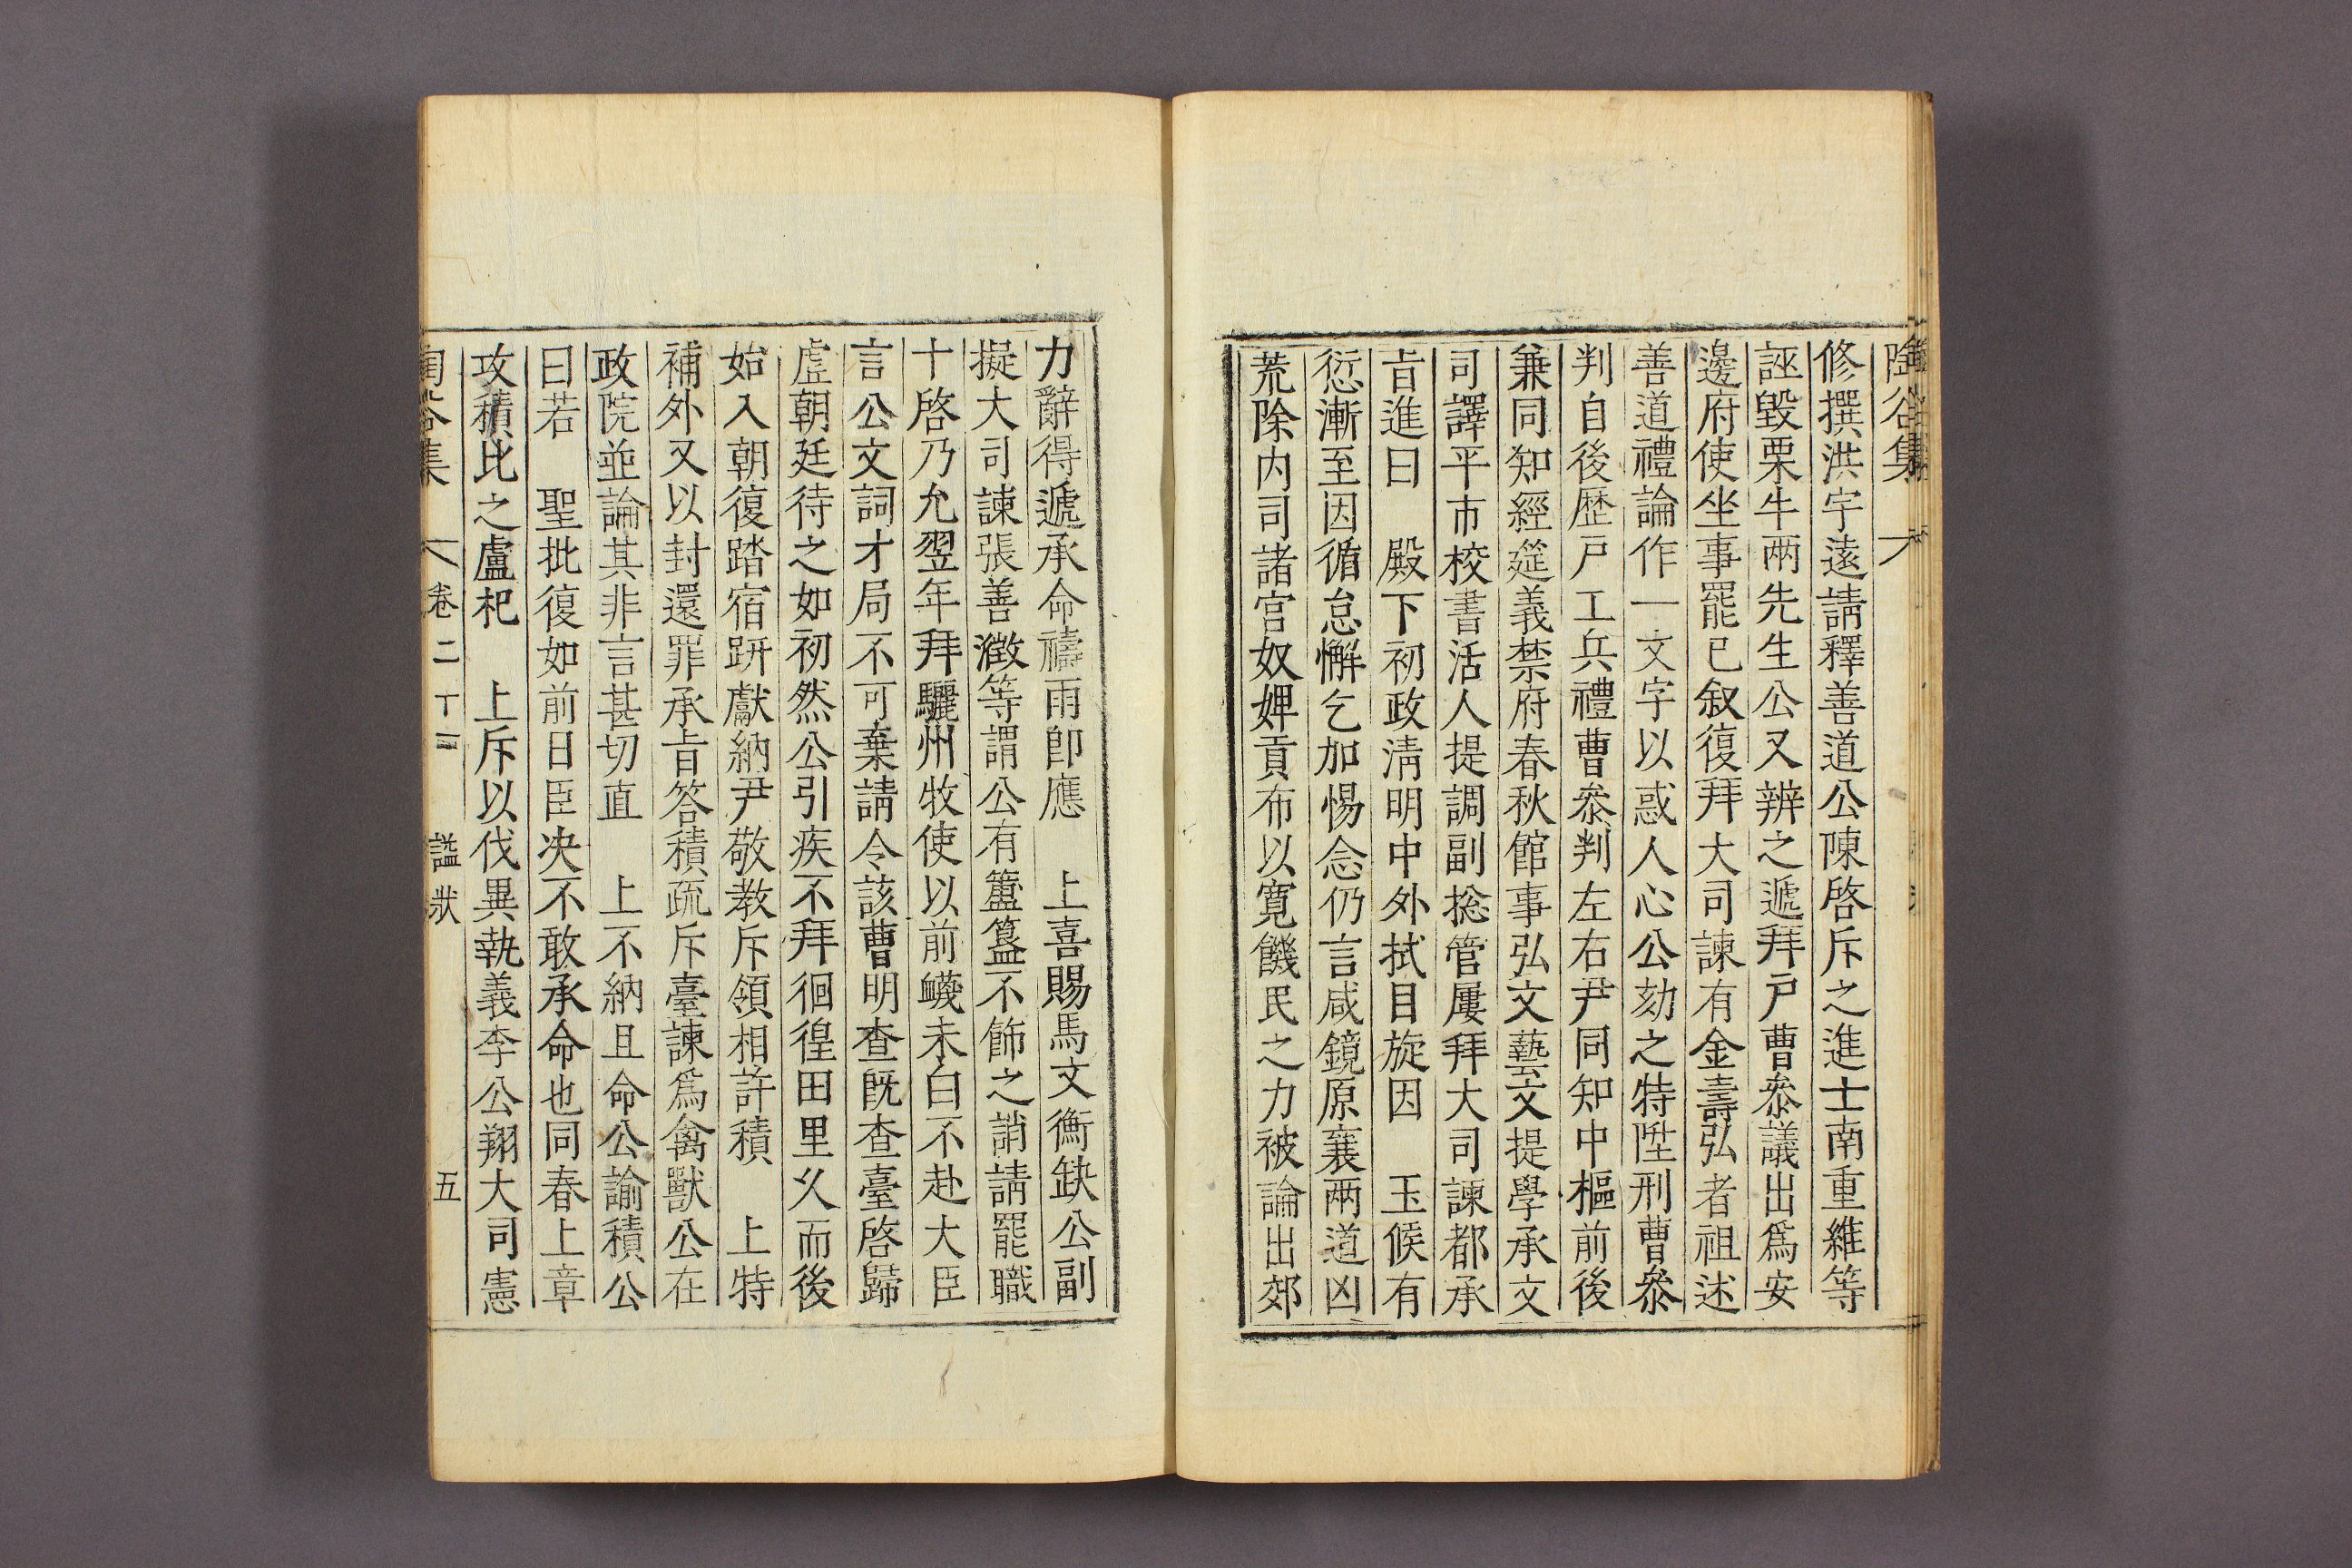 陶谷集
修撰洪宇遠請釋善道公陳啓斥之進士南重維等
誣毀栗牛兩先生公又辨之遞拜戶曹叅議出爲安
邊府使坐事罷已叙復拜大司諫有金壽弘者祖述
善道禮論作一文字以惑人心公劾之特陞刑曹叅
判自後歷戶工兵禮曹叅判左右尹同知中樞前後
兼同知經筵義禁府春秋館事弘文藝文提學承文
司譯平市校書活人提調副捴管屢拜大司諫都承
旨進曰 殿下初政淸明中外拭目旋因 玉候有
愆漸至因循怠懈乞加惕念仍言咸鏡原襄兩道凶
荒除内司諸宮奴婢貢布以寬饑民之力被論出郊
力辭得遞承命禱雨卽應 上喜賜馬文衡缺公副
擬大司諫張善瀓等謂公有簠簋不飾之誚請罷職
十啓乃允翌年拜驪州牧使以前衊未白不赴大臣
言公文詞才局不可棄請令該曹明查旣查臺啓歸
虛朝廷待之如初然公引疾不拜徊徨田里久而後
始入朝復踏宿趼獻納尹敬教斥領相許積 上特
補外又以封還罪承旨答積疏斥臺諫爲禽獸公在
政院並論其非言甚切直 上不納且命公諭積公
曰若 聖批復如前日臣决不敢承命也同春上章
攻積比之盧杞 上斥以伐異執義李公翔大司憲
陶谷集 卷二十三 諡狀 五